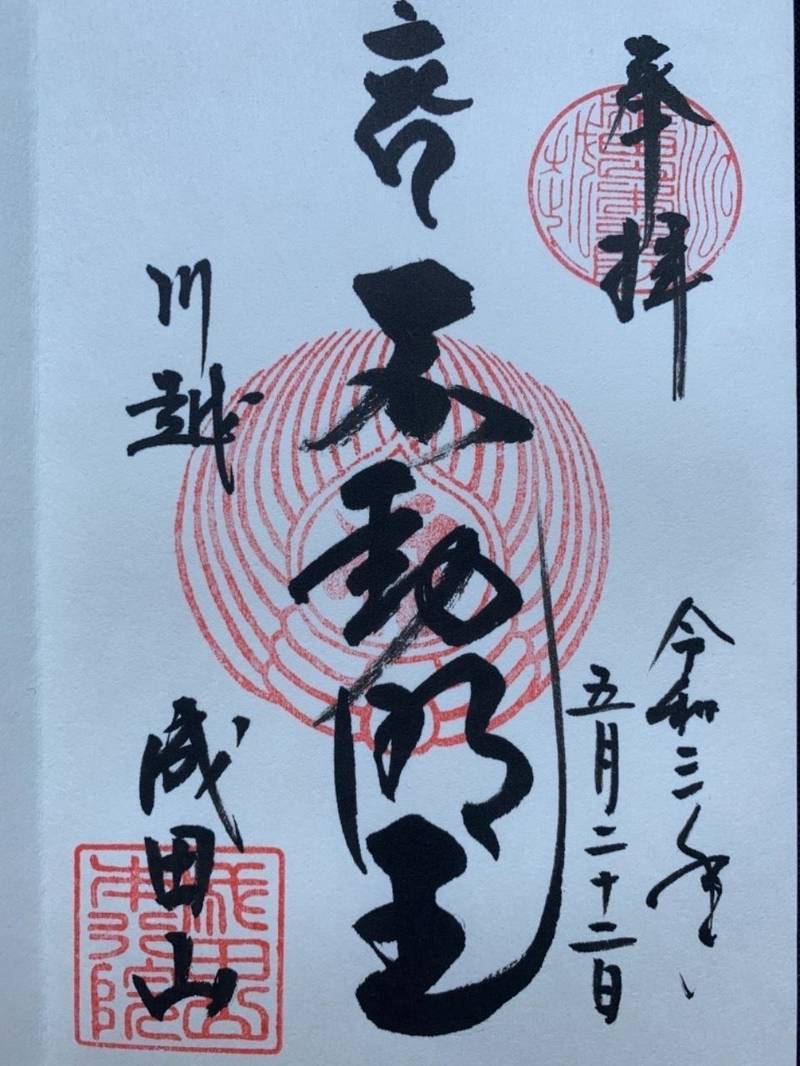 奉拝
令和三年
五月二十二日
不動明王
川越
成田山
成田山
本行院